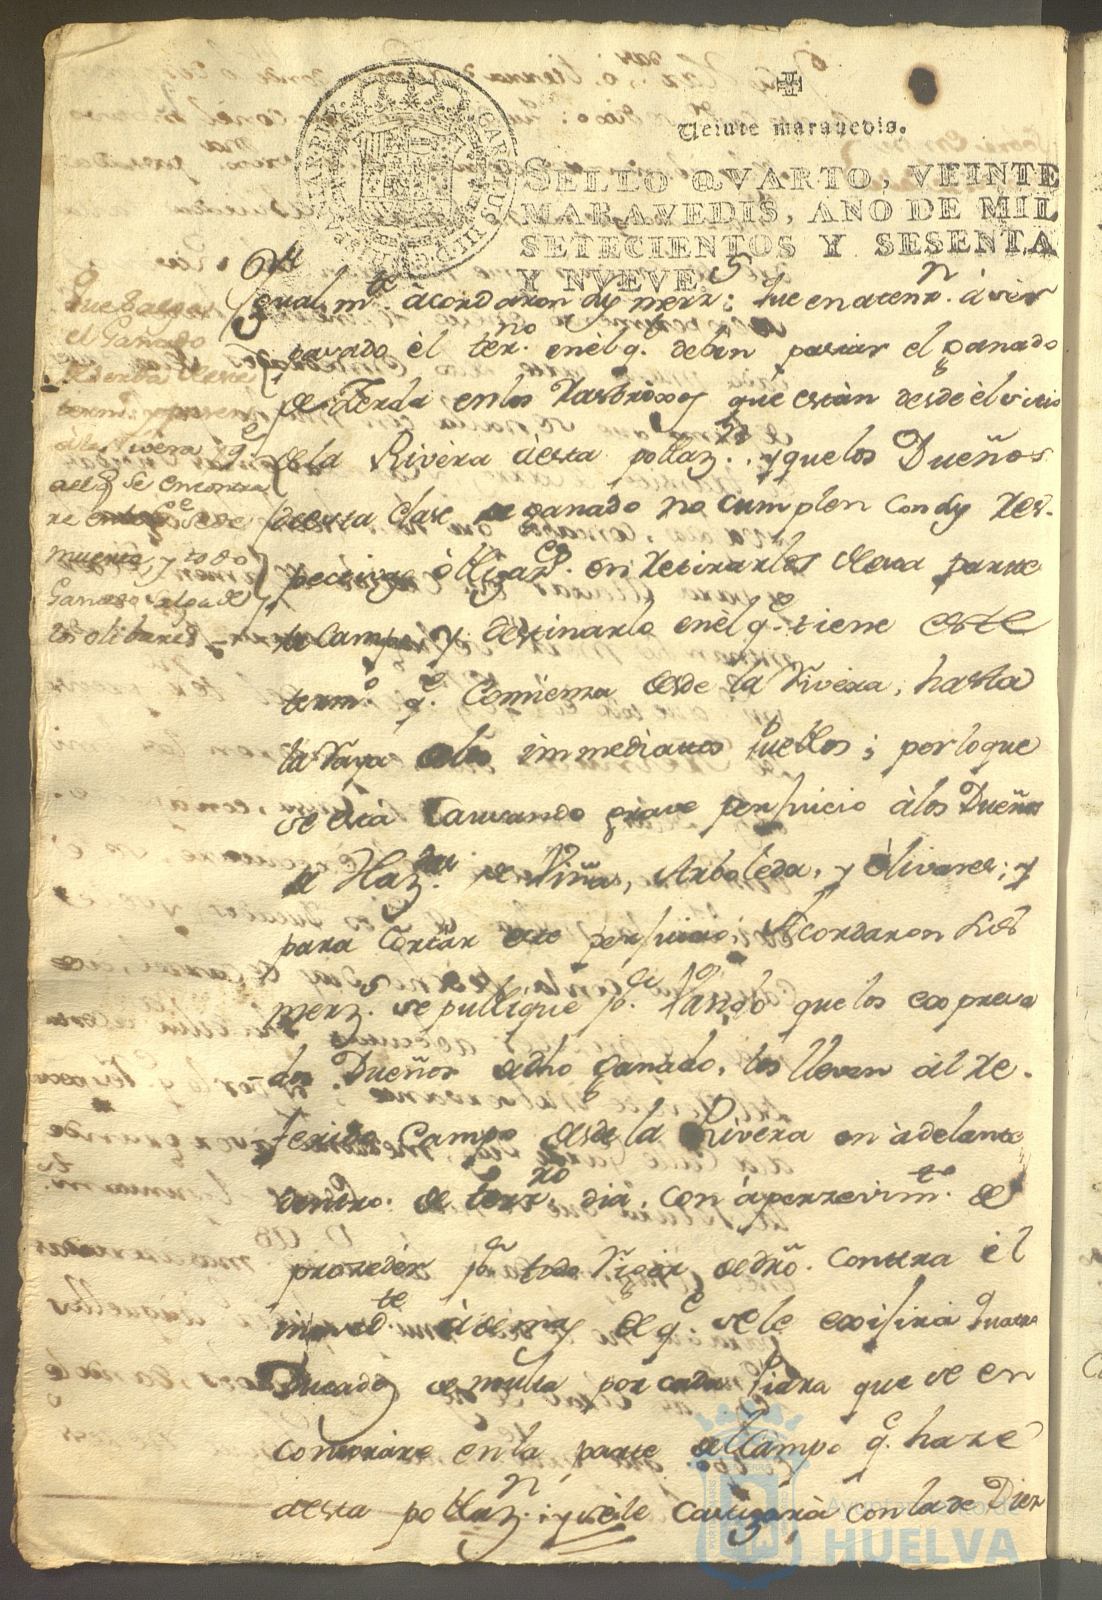 Veinte maravedis.
SELLO QVARTO, VEINTE
MARAVEDIS, AÑO DE MIL
SETECIENTOS Y SESENTA
Y NVEVE.
CAROLUS III D G
Que Salga
el Ganado
de Serda de este
term.º y
de la Rivera y q.e
el q.e se encontra
re
muerto, y todo
Ganado salga de
los olibares
Igualm.te acordaron dhos merz.s que en atenz.n à estar
el ter.no en el q.e deban pastar el ganado
de Zerda en los Rastroxos que están desde el sitio
de la Rivera á esta poblaz.n y que los Dueños
de esta clase de ganado no cumplen con
obligaz.on en Retirarlos de esta parte
de Campo y destinarlo en el q.e tiene este
term.º q.e Comienza desde la Rivera, hasta
la Raya de los immediattos Pueblos; por lo que
se está Causando grave perjuicio à los Dueños
de Haz.das de Viñas, Arboleda, y Olivares; y
para Cortar este perjuicio; Acordaron sus
merz.s se publique p.r Vando que los expresa
dos Dueños de dho ganado, los lleven al Re-
ferido Campo desde la Rivera en adelante
dentro de terz.ro dia, con apercevim.to de
proceder p.r todo Rigor de dro. contra el
à demas de q.e se le exijirá quatro
Ducados de multa por cada Piara que se en
contrare en la parte del Campo q.e haze
a esta poblaz.n; y se le Castigará con la de Diez
Ayuntamiento de
HUELVA